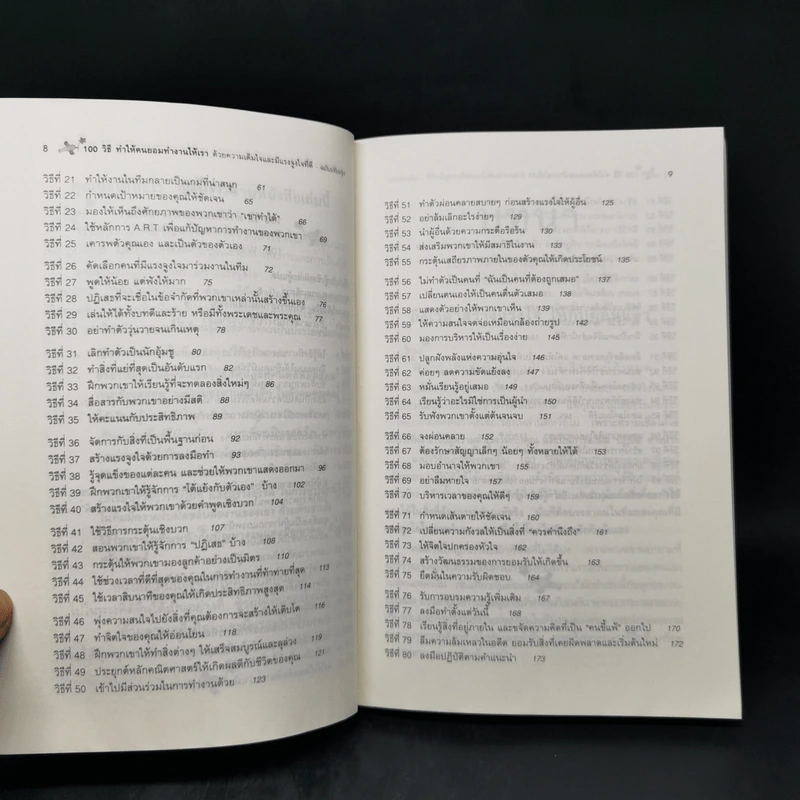 8 100 วิธี ทำให้คนยอมทำงานให้เรา ด้วยความเต็มใจและมีแรงจูงใจที่ดี
วิธีที่ 21 ทำให้งานในทีมกลายเป็นเกมที่น่าสนุก 61
วิธีที่ 22 กำหนดเป้าหมายของคุณให้ชัดเจน 65
วิธีที่ 23 มองให้เห็นถึงศักยภาพของพวกเขาว่า "เขาทำได้" 66
วิธีที่ 24 ใช้หลักการ A.R.T เพื่อแก้ปัญหาการทำงานของพวกเขา 69
วิธีที่ 25 เคารพตัวคุณเอง และเป็นตัวของตัวเอง 71
วิธีที่ 26 คัดเลือกคนที่มีแรงจูงใจมาร่วมงานในทีม 72
วิธีที่ 27 พูดให้น้อย แต่ฟังให้มาก 75
วิธีที่ 28 ปฏิเสธที่จะเชื่อในข้อจำกัดที่พวกเขาเหล่านั้นสร้างขึ้นเอง 76
วิธีที่ 29 เล่นให้ได้ทั้งบทดีและร้าย หรือมีทั้งพระเดชและพระคุณ 77
วิธีที่ 30 อย่าทำตัววุ่นวายจนเกินเหตุ 78
วิธีที่ 31 เลิกทำตัวเป็นนักอุ้มชู 80
วิธีที่ 32 ทำสิ่งที่แย่ที่สุดเป็นอันดับแรก 82
วิธีที่ 33 ฝึกพวกเขาให้เรียนรู้ที่จะทดลองสิ่งใหม่ๆ 86
วิธีที่ 34 สื่อสารกับพวกเขาอย่างมีสติ 88
วิธีที่ 35 ให้คะแนนกับประสิทธิภาพ 89
วิธีที่ 36 จัดการกับสิ่งที่เป็นพื้นฐานก่อน 92
วิธีที่ 37 สร้างแรงจูงใจด้วยการลงมือทำ 93
วิธีที่ 38 รู้จุดแข็งของแต่ละคน และช่วยให้พวกเขาแสดงออกมา 96
วิธีที่ 39 ฝึกพวกเขาให้รู้จักการ "โต้แย้งกับตัวเอง" บ้าง 102
วิธีที่ 40 สร้างแรงใจให้พวกเขาด้วยคำพูดเชิงบวก 104
วิธีที่ 41 ใช้วิธีการกระตุ้นเชิงบวก 107
วิธีที่ 42 สอนพวกเขาให้รู้จักการ "ปฏิเสธ" บ้าง 108
วิธีที่ 43 กระตุ้นให้พวกเขามองลูกค้าอย่างเป็นมิตร 110
วิธีที่ 44 ใช้ช่วงเวลาที่ดีที่สุดของคุณในการทำงานที่ท้าทายที่สุด 113
วิธีที่ 45 ใช้เวลาสิบนาทีของคุณให้เกิดประสิทธิภาพสูงสุด 114
วิธีที่ 46 พุ่งความสนใจไปยังสิ่งที่คุณต้องการจะสร้างให้เติบโต 116
วิธีที่ 47 ทำจิตใจของคุณให้อ่อนโยน 118
วิธีที่ 48 ฝึกพวกเขาให้ทำสิ่งต่างๆ ให้เสร็จสมบูรณ์และลุล่วง 119
วิธีที่ 49 ประยุกต์หลักคณิตศาสตร์ให้เกิดผลดีกับชีวิตของคุณ 121
วิธีที่ 50 เข้าไปมีส่วนร่วมในการทำงานด้วย 123
9
วิธีที่ 51 ทำตัวผ่อนคลายสบายๆ ก่อนสร้างแรงใจให้ผู้อื่น 125
วิธีที่ 52 อย่าล้มเลิกอะไรง่ายๆ 129
วิธีที่ 53 นำผู้อื่นด้วยความกระตือรือร้น 130
วิธีที่ 54 ส่งเสริมพวกเขาให้มีสมาธิในงาน 133
วิธีที่ 55 กระตุ้นเสถียรภาพภายในของตัวคุณให้เกิดประโยชน์ 135
วิธีที่ 56 ไม่ทำตัวเป็นคนที่ "ฉันเป็นคนที่ต้องถูกเสมอ" 137
วิธีที่ 57 เปลี่ยนตนเองให้เป็นคนตื่นตัวเสมอ 138
วิธีที่ 58 แสดงตัวอย่างให้พวกเขาเห็น 139
วิธีที่ 59 ให้ความสนใจจดจ่อเหมือนกล้องถ่ายรูป 142
วิธีที่ 60 มองการบริหารให้เป็นเรื่องง่าย 145
วิธีที่ 61 ปลูกฝังพลังแห่งความอุ่นใจ 146
วิธีที่ 62 ค่อยๆ ลดความขัดแย้งลง 147
วิธีที่ 63 หมั่นเรียนรู้อยู่เสมอ 149
วิธีที่ 64 เรียนรู้ว่าอะไรมิใช่การเป็นผู้นำ 150
วิธีที่ 65 รับฟังพวกเขาตั้งแต่ต้นจนจบ 151
วิธีที่ 66 จงผ่อนคลาย 152
วิธีที่ 67 ต้องรักษาสัญญาเล็กๆ น้อยๆ ทั้งหลายให้ได้ 153
วิธีที่ 68 มอบอำนาจให้พวกเขา 155
วิธีที่ 69 อย่าลืมหายใจ 157
วิธีที่ 70 บริหารเวลาของคุณให้ดีๆ 159
วิธีที่ 71 กำหนดเส้นตายให้ชัดเจน 160
วิธีที่ 72 เปลี่ยนความกังวลให้เป็นสิ่งที่ "ควรคำนึงถึง" 161
วิธีที่ 73 ให้จิตใจปกครองหัวใจ 162
วิธีที่ 74 สร้างวัฒนธรรมของการยอมรับให้เกิดขึ้น 163
วิธีที่ 75 ยืดมั่นในความรับผิดชอบ 164
วิธีที่ 76 รับการอบรมความรู้เพิ่มเติม 167
วิธีที่ 77 ลงมือทำตั้งแต่วันนี้ 168
วิธีที่ 78 เรียนรู้สิ่งที่อยู่ภายใน และขจัดความคิดที่เป็น "คนขี้แพ้" ออกไป 170
วิธีที่ 79 ลืมความล้มเหลวในอดีต ยอมรับสิ่งที่เคยผิดพลาดและเริ่มต้นใหม่ 172
วิธีที่ 80 ลงมือปฏิบัติตามคำแนะนำ 173